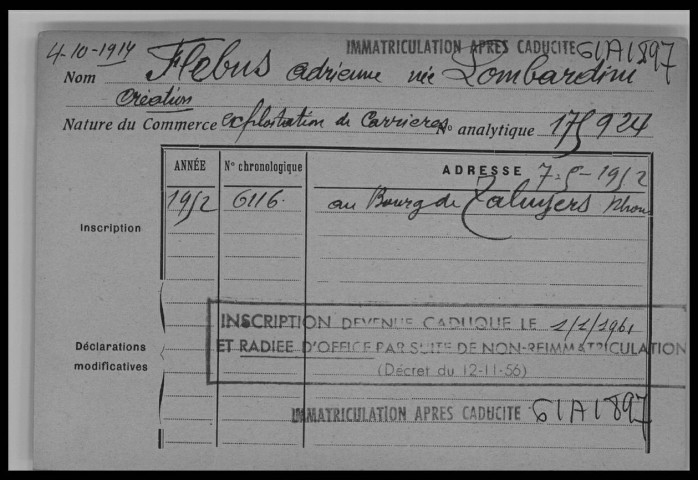 4-10-1914 IMMATRICULATION APRES CADUCITE 61A1897
Nom Flebus Adrienne née Lombardini
Création
Nature du Commerce exploitation de Carrieres No analytique 175924
ANNÉE No chronologique ADRESSE 7-5-1952
1952 6116. au Bourg de Taluyers Rhone
Inscription
INSCRIPTION DEVENUE CADUQUE LE 1/1/1961
Déclarations modificatives
ET RADIEE D'OFFICE PAR SUITE DE NON-REIMMATRICULATION
(Décret du 12-11-56)
IMMATRICULATION APRES CADUCITE 61A1897